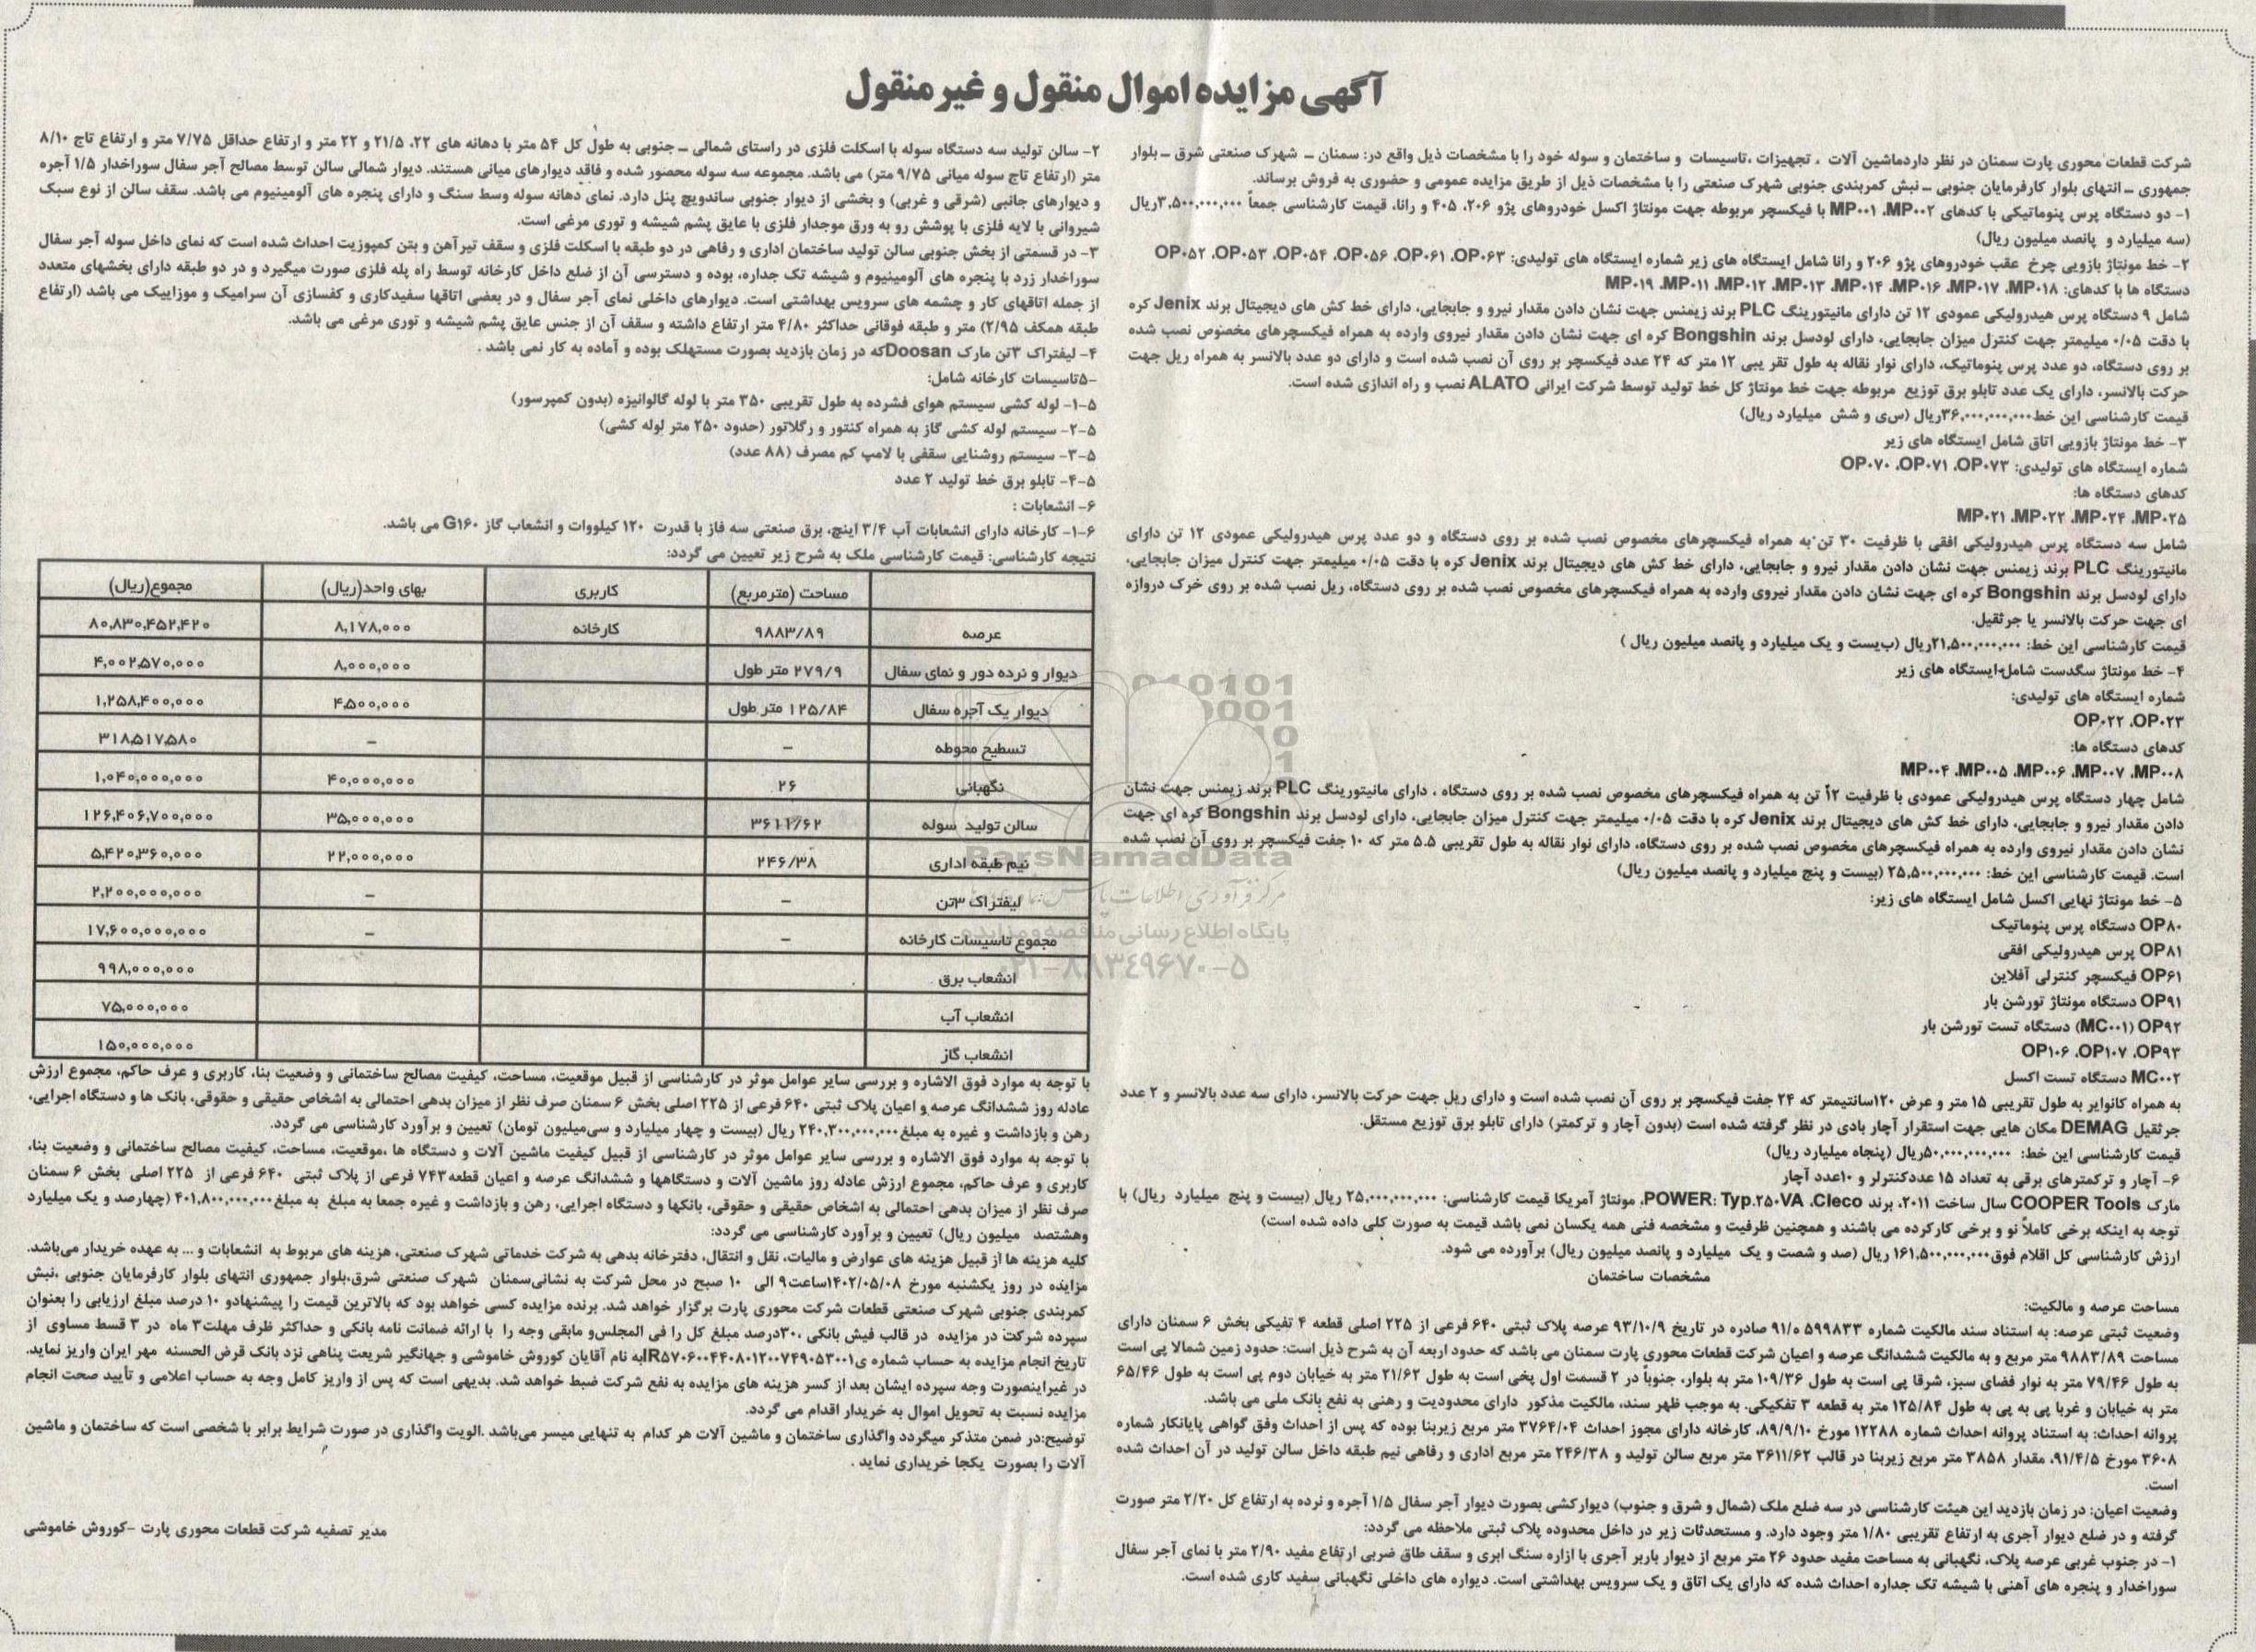 آگهی مزایده اموال منقول و غیر منقول
شرکت قطعات محوری پارت سمنان در نظر داردماشین آلات ، تجهیزات ،تاسیسات و ساختمان و سوله خود را با مشخصات ذیل واقع در: سمنان – شهرک صنعتی شرق – بلوار
جمهوری – انتهای بلوار کارفرمایان جنوبی – نبش کمربندی جنوبی شهرک صنعتی را با مشخصات ذیل از طریق مزایده عمومی و حضوری به فروش برساند.
۱- دو دستگاه پرس پنوماتیکی با کدهای MP۰۰۱ ،MP۰۰۲ با فیکسچر مربوطه جهت مونتاژ اکسل خودروهای پژو ۲۰۶، ۴۰۵ و رانا، قیمت کارشناسی جمعاً ۳,۵۰۰,۰۰۰,۰۰۰ریال
(سه میلیارد و پانصد میلیون ریال)
۲- خط مونتاژ بازویی چرخ عقب خودروهای پژو ۲۰۶ و رانا شامل ایستگاه های زیر شماره ایستگاه های تولیدی: OP۰۵۲ ،OP۰۵۳ ،OP۰۵۴ ،OP۰۵۶ ،OP۰۶۱ ،OP۰۶۳
دستگاه ها با کدهای: MP۰۱۹ ،MP۰۱۱ ،MP۰۱۲ ،MP۰۱۳ ،MP۰۱۴ ،MP۰۱۶ ،MP۰۱۷ ،MP۰۱۸
شامل ۹ دستگاه پرس هیدرولیکی عمودی ۱۲ تن دارای مانیتورینگ PLC برند زیمنس جهت نشان دادن مقدار نیرو و جابجایی، دارای خط کش های دیجیتال برند Jenix کره
با دقت ۰/۰۵ میلیمتر جهت کنترل میزان جابجایی، دارای لودسل برند Bongshin کره ای جهت نشان دادن مقدار نیروی وارده به همراه فیکسچرهای مخصوص نصب شده
بر روی دستگاه، دو عدد پرس پنوماتیک، دارای نوار نقاله به طول تقر یبی ۱۲ متر که ۲۴ عدد فیکسچر بر روی آن نصب شده است و دارای دو عدد بالانسر به همراه ریل جهت
حرکت بالانسر، دارای یک عدد تابلو برق توزیع مربوطه جهت خط مونتاژ کل خط تولید توسط شرکت ایرانی ALATO نصب و راه اندازی شده است.
قیمت کارشناسی این خط۳۶,۰۰۰,۰۰۰,۰۰۰ریال (سی و شش میلیارد ریال)
۳- خط مونتاژ بازویی اتاق شامل ایستگاه های زیر
شماره ایستگاه های تولیدی: OP۰۷۰ ،OP۰۷۱ ،OP۰۷۳
کدهای دستگاه ها:
MP۰۲۱ ،MP۰۲۲ ،MP۰۲۴ ،MP۰۲۵
شامل سه دستگاه پرس هیدرولیکی افقی با ظرفیت ۳۰ تن به همراه فیکسچرهای مخصوص نصب شده بر روی دستگاه و دو عدد پرس هیدرولیکی عمودی ۱۲ تن دارای
مانیتورینگ PLC برند زیمنس جهت نشان دادن مقدار نیرو و جابجایی، دارای خط کش های دیجیتال برند Jenix کره با دقت ۰/۰۵ میلیمتر جهت کنترل میزان جابجایی،
دارای لودسل برند Bongshin کره ای جهت نشان دادن مقدار نیروی وارده به همراه فیکسچرهای مخصوص نصب شده بر روی دستگاه، ریل نصب شده بر روی خرک دروازه
ای جهت حرکت بالانسر یا جرثقیل.
قیمت کارشناسی این خط: ۲۱,۵۰۰,۰۰۰,۰۰۰ریال (ب‌یست و یک میلیارد و پانصد میلیون ریال )
۴- خط مونتاژ سگدست شامل ایستگاه های زیر
شماره ایستگاه های تولیدی:
OP۰۲۲ ،OP۰۲۳
کدهای دستگاه ها:
MP۰۰۴ ،MP۰۰۵ ،MP۰۰۶ ،MP۰۰۷ ،MP۰۰۸
شامل چهار دستگاه پرس هیدرولیکی عمودی با ظرفیت ۱۲ تن به همراه فیکسچرهای مخصوص نصب شده بر روی دستگاه ، دارای مانیتورینگ PLC برند زیمنس جهت نشان
دادن مقدار نیرو و جابجایی، دارای خط کش های دیجیتال برند Jenix کره با دقت ۰/۰۵ میلیمتر جهت کنترل میزان جابجایی، دارای لودسل برند Bongshin کره ای جهت
نشان دادن مقدار نیروی وارده به همراه فیکسچرهای مخصوص نصب شده بر روی دستگاه، دارای نوار نقاله به طول تقریبی ۵.۵ متر که ۱۰ جفت فیکسچر بر روی آن نصب شده
است. قیمت کارشناسی این خط: ۲۵,۵۰۰,۰۰۰,۰۰۰ (بیست و پنج میلیارد و پانصد میلیون ریال)
۵- خط مونتاژ نهایی اکسل شامل ایستگاه های زیر:
OP۸۰ دستگاه پرس پنوماتیک
OP۸۱ پرس هیدرولیکی افقی
OP۶۱ فیکسچر کنترلی آفلاین
OP۹۱ دستگاه مونتاژ تورشن بار
OP۹۲ (MC۰۰۱) دستگاه تست تورشن بار
OP۱۰۶ ،OP۱۰۷ ،OP۹۳
MC۰۰۲ دستگاه تست اکسل
به همراه کانوایر به طول تقریبی ۱۵ متر و عرض ۱۲۰سانتیمتر که ۲۴ جفت فیکسچر بر روی آن نصب شده است و دارای ریل جهت حرکت بالانسر، دارای سه عدد بالانسر و ۲ عدد
جرثقیل DEMAG مکان هایی جهت استقرار آچار بادی در نظر گرفته شده است (بدون آچار و ترکمتر) دارای تابلو برق توزیع مستقل.
قیمت کارشناسی این خط: ۵۰,۰۰۰,۰۰۰,۰۰۰ریال (پنجاه میلیارد ریال)
۶- آچار و ترکمترهای برقی به تعداد ۱۵ عددکنترلر و ۱۰عدد آچار
مارک COOPER Tools سال ساخت ۲۰۱۱، برند POWER: Typ.۲۵۰VA ،Cleco، مونتاژ آمریکا قیمت کارشناسی: ۲۵,۰۰۰,۰۰۰,۰۰۰ ریال (بیست و پنج میلیارد ریال) با
توجه به اینکه برخی کاملاً نو و برخی کارکرده می باشند و همچنین ظرفیت و مشخصه فنی همه یکسان نمی باشد قیمت به صورت کلی داده شده است)
ارزش کارشناسی کل اقلام فوق۱۶۱,۵۰۰,۰۰۰,۰۰۰ ریال (صد و شصت و یک میلیارد و پانصد میلیون ریال) برآورده می شود.
مشخصات ساختمان
مساحت عرصه و مالکیت:
وضعیت ثبتی عرصه: به استناد سند مالکیت شماره ۵۹۹۸۳۳ ه/۹۱ صادره در تاریخ ۹۳/۱۰/۹ عرصه پلاک ثبتی ۶۴۰ فرعی از ۲۲۵ اصلی قطعه ۴ تفیکی بخش ۶ سمنان دارای
مساحت ۹۸۸۳/۸۹ متر مربع و به مالکیت ششدانگ عرصه و اعیان شرکت قطعات محوری پارت سمنان می باشد که حدود اربعه آن به شرح ذیل است: حدود زمین شمالا پی است
به طول ۷۹/۴۶ متر به نوار فضای سبز، شرقا پی است به طول ۱۰۹/۳۶ متر به بلوار، جنوباً در ۲ قسمت اول پخی است به طول ۲۱/۶۲ متر به خیابان دوم پی است به طول ۶۵/۴۶
متر به خیابان و غربا پی به پی به طول ۱۲۵/۸۴ متر به قطعه ۳ تفکیکی. به موجب ظهر سند، مالکیت مذکور دارای محدودیت و رهنی به نفع بانک ملی می باشد.
پروانه احداث: به استناد پروانه احداث شماره ۱۲۲۸۸ مورخ ۸۹/۹/۱۰، کارخانه دارای مجوز احداث ۳۷۶۴/۰۴ متر مربع زیربنا بوده که پس از احداث وفق گواهی پایانکار شماره
۳۶۰۸ مورخ ۹۱/۴/۵، مقدار ۳۸۵۸ متر مربع زیربنا در قالب ۳۶۱۱/۶۲ متر مربع سالن تولید و ۲۴۶/۳۸ متر مربع اداری و رفاهی نیم طبقه داخل سالن تولید در آن احداث شده
است.
وضعیت اعیان: در زمان بازدید این هیئت کارشناسی در سه ضلع ملک (شمال و شرق و جنوب) دیوارکشی بصورت دیوار آجر سفال ۱/۵ آجره و نرده به ارتفاع کل ۲/۲۰ متر صورت
گرفته و در ضلع دیوار آجری به ارتفاع تقریبی ۱/۸۰ متر وجود دارد. و مستحدثات زیر در داخل محدوده پلاک ثبتی ملاحظه می گردد:
۱- در جنوب غربی عرصه پلاک، نگهبانی به مساحت مفید حدود ۲۶ متر مربع از دیوار باربر آجری با ازاره سنگ ابری و سقف طاق ضربی ارتفاع مفید ۲/۹۰ متر با نمای آجر سفال
سوراخدار و پنجره های آهنی با شیشه تک جداره احداث شده که دارای یک اتاق و یک سرویس بهداشتی است. دیواره های داخلی نگهبانی سفید کاری شده است.
۲- سالن تولید سه دستگاه سوله با اسکلت فلزی در راستای شمالی – جنوبی به طول کل ۵۴ متر با دهانه های ۲۲، ۲۱/۵ و ۲۲ متر و ارتفاع حداقل ۷/۷۵ متر و ارتفاع تاج ۸/۱۰
متر (ارتفاع تاج سوله میانی ۹/۷۵ متر) می باشد. مجموعه سه سوله محصور شده و فاقد دیوارهای میانی هستند. دیوار شمالی سالن توسط مصالح آجر سفال سوراخدار ۱/۵ آجره
و دیوارهای جانبی (شرقی و غربی) و بخشی از دیوار جنوبی ساندویچ پنل دارد. نمای دهانه سوله وسط سنگ و دارای پنجره های آلومینیوم می باشد. سقف سالن از نوع سبک
شیروانی با لایه فلزی با پوشش رو به ورق موجدار فلزی با عایق پشم شیشه و توری مرغی است.
۳- در قسمتی از بخش جنوبی سالن تولید ساختمان اداری و رفاهی در دو طبقه با اسکلت فلزی و سقف تیرآهن و بتن کمپوزیت احداث شده است که نمای داخل سوله آجر سفال
سوراخدار زرد با پنجره های آلومینیوم و شیشه تک جداره، بوده و دسترسی آن از ضلع داخل کارخانه توسط راه پله فلزی صورت میگیرد و در دو طبقه دارای بخشهای متعدد
از جمله اتاقهای کار و چشمه های سرویس بهداشتی است. دیوارهای داخلی نمای آجر سفال و در بعضی اتاقها سفیدکاری و کفسازی آن سرامیک و موزاییک می باشد (ارتفاع
طبقه همکف ۲/۹۵) متر و طبقه فوقانی حداکثر ۴/۸۰ متر ارتفاع داشته و سقف آن از جنس عایق پشم شیشه و توری مرغی می باشد.
۴- لیفتراک ۳تن مارک Doosanکه در زمان بازدید بصورت مستهلک بوده و آماده به کار نمی باشد .
-۵تاسیسات کارخانه شامل:
۵-۱- لوله کشی سیستم هوای فشرده به طول تقریبی ۳۵۰ متر با لوله گالوانیزه (بدون کمپرسور)
۵-۲- سیستم لوله کشی گاز به همراه کنتور و رگلاتور (حدود ۲۵۰ متر لوله کشی)
۵-۳- سیستم روشنایی سقفی با لامپ کم مصرف (۸۸ عدد)
۵-۴- تابلو برق خط تولید ۲ عدد
۶- انشعابات :
۶-۱- کارخانه دارای انشعابات آب ۳/۴ اینچ، برق صنعتی سه فاز با قدرت ۱۲۰ کیلووات و انشعاب گاز G۱۶۰ می باشد.
نتیجه کارشناسی: قیمت کارشناسی ملک به شرح زیر تعیین می گردد:
مساحت (مترمربع) کاربری بهای واحد(ریال) مجموع(ریال)
عرصه ۹۸۸۳/۸۹ کارخانه ۸,۱۷۸,۰۰۰ ۸۰,۸۳۰,۴۵۲,۴۲۰
دیوار و نرده دور و نمای سفال ۲۷۹/۹ متر طول ۸,۰۰۰,۰۰۰ ۴,۰۰۲,۵۷۰,۰۰۰
دیوار یک آجره سفال ۱۲۵/۸۴ متر طول ۴,۵۰۰,۰۰۰ ۱,۲۵۸,۴۰۰,۰۰۰
تسطیح محوطه – – ۳۱۸,۵۱۷,۵۸۰
نگهبانی ۲۶ ۴۰,۰۰۰,۰۰۰ ۱,۰۴۰,۰۰۰,۰۰۰
سالن تولید سوله ۳۶۱۱/۶۲ ۳۵,۰۰۰,۰۰۰ ۱۲۶,۴۰۶,۷۰۰,۰۰۰
نیم طبقه اداری ۲۴۶/۳۸ ۲۲,۰۰۰,۰۰۰ ۵,۴۲۰,۳۶۰,۰۰۰
لیفتراک ۳تن – – ۲,۲۰۰,۰۰۰,۰۰۰
مجموع تاسیسات کارخانه – – ۱۷,۶۰۰,۰۰۰,۰۰۰
انشعاب برق ۹۹۸,۰۰۰,۰۰۰
انشعاب آب ۷۵,۰۰۰,۰۰۰
انشعاب گاز ۱۵۰,۰۰۰,۰۰۰
با توجه به موارد فوق الاشاره و بررسی سایر عوامل موثر در کارشناسی از قبیل موقعیت، مساحت، کیفیت مصالح ساختمانی و وضعیت بنا، کاربری و عرف حاکم، مجموع ارزش
عادله روز ششدانگ عرصه و اعیان پلاک ثبتی ۶۴۰ فرعی از ۲۲۵ اصلی بخش ۶ سمنان صرف نظر از میزان بدهی احتمالی به اشخاص حقیقی و حقوقی، بانک ها و دستگاه اجرایی،
رهن و بازداشت و غیره به مبلغ۲۴۰,۳۰۰,۰۰۰,۰۰۰ ریال (بیست و چهار میلیارد و سی‌میلیون تومان) تعیین و برآورد کارشناسی می گردد.
با توجه به موارد فوق الاشاره و بررسی سایر عوامل موثر در کارشناسی از قبیل کیفیت ماشین آلات و دستگاه ها ،موقعیت، مساحت، کیفیت مصالح ساختمانی و وضعیت بنا،
کاربری و عرف حاکم، مجموع ارزش عادله روز ماشین آلات و دستگاهها و ششدانگ عرصه و اعیان قطعه۷۴۳ فرعی از پلاک ثبتی ۶۴۰ فرعی از ۲۲۵ اصلی بخش ۶ سمنان
صرف نظر از میزان بدهی احتمالی به اشخاص حقیقی و حقوقی، بانکها و دستگاه اجرایی، رهن و بازداشت و غیره جمعا به مبلغ به مبلغ۴۰۱,۸۰۰,۰۰۰,۰۰۰ (چهارصد و یک میلیارد
وهشتصد میلیون ریال) تعیین و برآورد کارشناسی می گردد:
کلیه هزینه ها از قبیل هزینه های عوارض و مالیات، نقل و انتقال، دفترخانه بدهی به شرکت خدماتی شهرک صنعتی، هزینه های مربوط به انشعابات و ... به عهده خریدار می‌باشد.
مزایده در روز یکشنبه مورخ ۱۴۰۲/۰۵/۰۸ساعت۹ الی ۱۰ صبح در محل شرکت به نشانی‌سمنان شهرک صنعتی شرق،بلوار جمهوری انتهای بلوار کارفرمایان جنوبی ،نبش
کمربندی جنوبی شهرک صنعتی قطعات شرکت محوری پارت برگزار خواهد شد. برنده مزایده کسی خواهد بود که بالاترین قیمت را پیشنهادو ۱۰ درصد مبلغ ارزیابی را بعنوان
سپرده شرکت در مزایده در قالب فیش بانکی ،۳۰درصد مبلغ کل را فی المجلس‌و مابقی وجه را با ارائه ضمانت نامه بانکی و حداکثر ظرف مهلت۳ ماه در ۳ قسط مساوی از
تاریخ انجام مزایده به حساب شماره ی‌IR۵۷۰۶۰۰۴۴۰۸۰۱۲۰۰۷۴۹۰۵۳۰۰۱به نام آقایان کوروش خاموشی و جهانگیر شریعت پناهی نزد بانک قرض الحسنه مهر ایران واریز نماید.
در غیراینصورت وجه سپرده ایشان بعد از کسر هزینه های مزایده به نفع شرکت ضبط خواهد شد. بدیهی است که پس از واریز کامل وجه به حساب اعلامی و تأیید صحت انجام
مزایده نسبت به تحویل اموال به خریدار اقدام می گردد.
توضیح:در ضمن متذکر میگردد واگذاری ساختمان و ماشین آلات هر کدام به تنهایی میسر می‌باشد .الویت واگذاری در صورت شرایط برابر با شخصی است که ساختمان و ماشین
آلات را بصورت یکجا خریداری نماید .
مدیر تصفیه شرکت قطعات محوری پارت -کوروش خاموشی
ParsNamadData
پایگاه اطلاع رسانی مناقصه و مزایده
۰۲۱-۸۸۳۴۹۶۷۰-۵